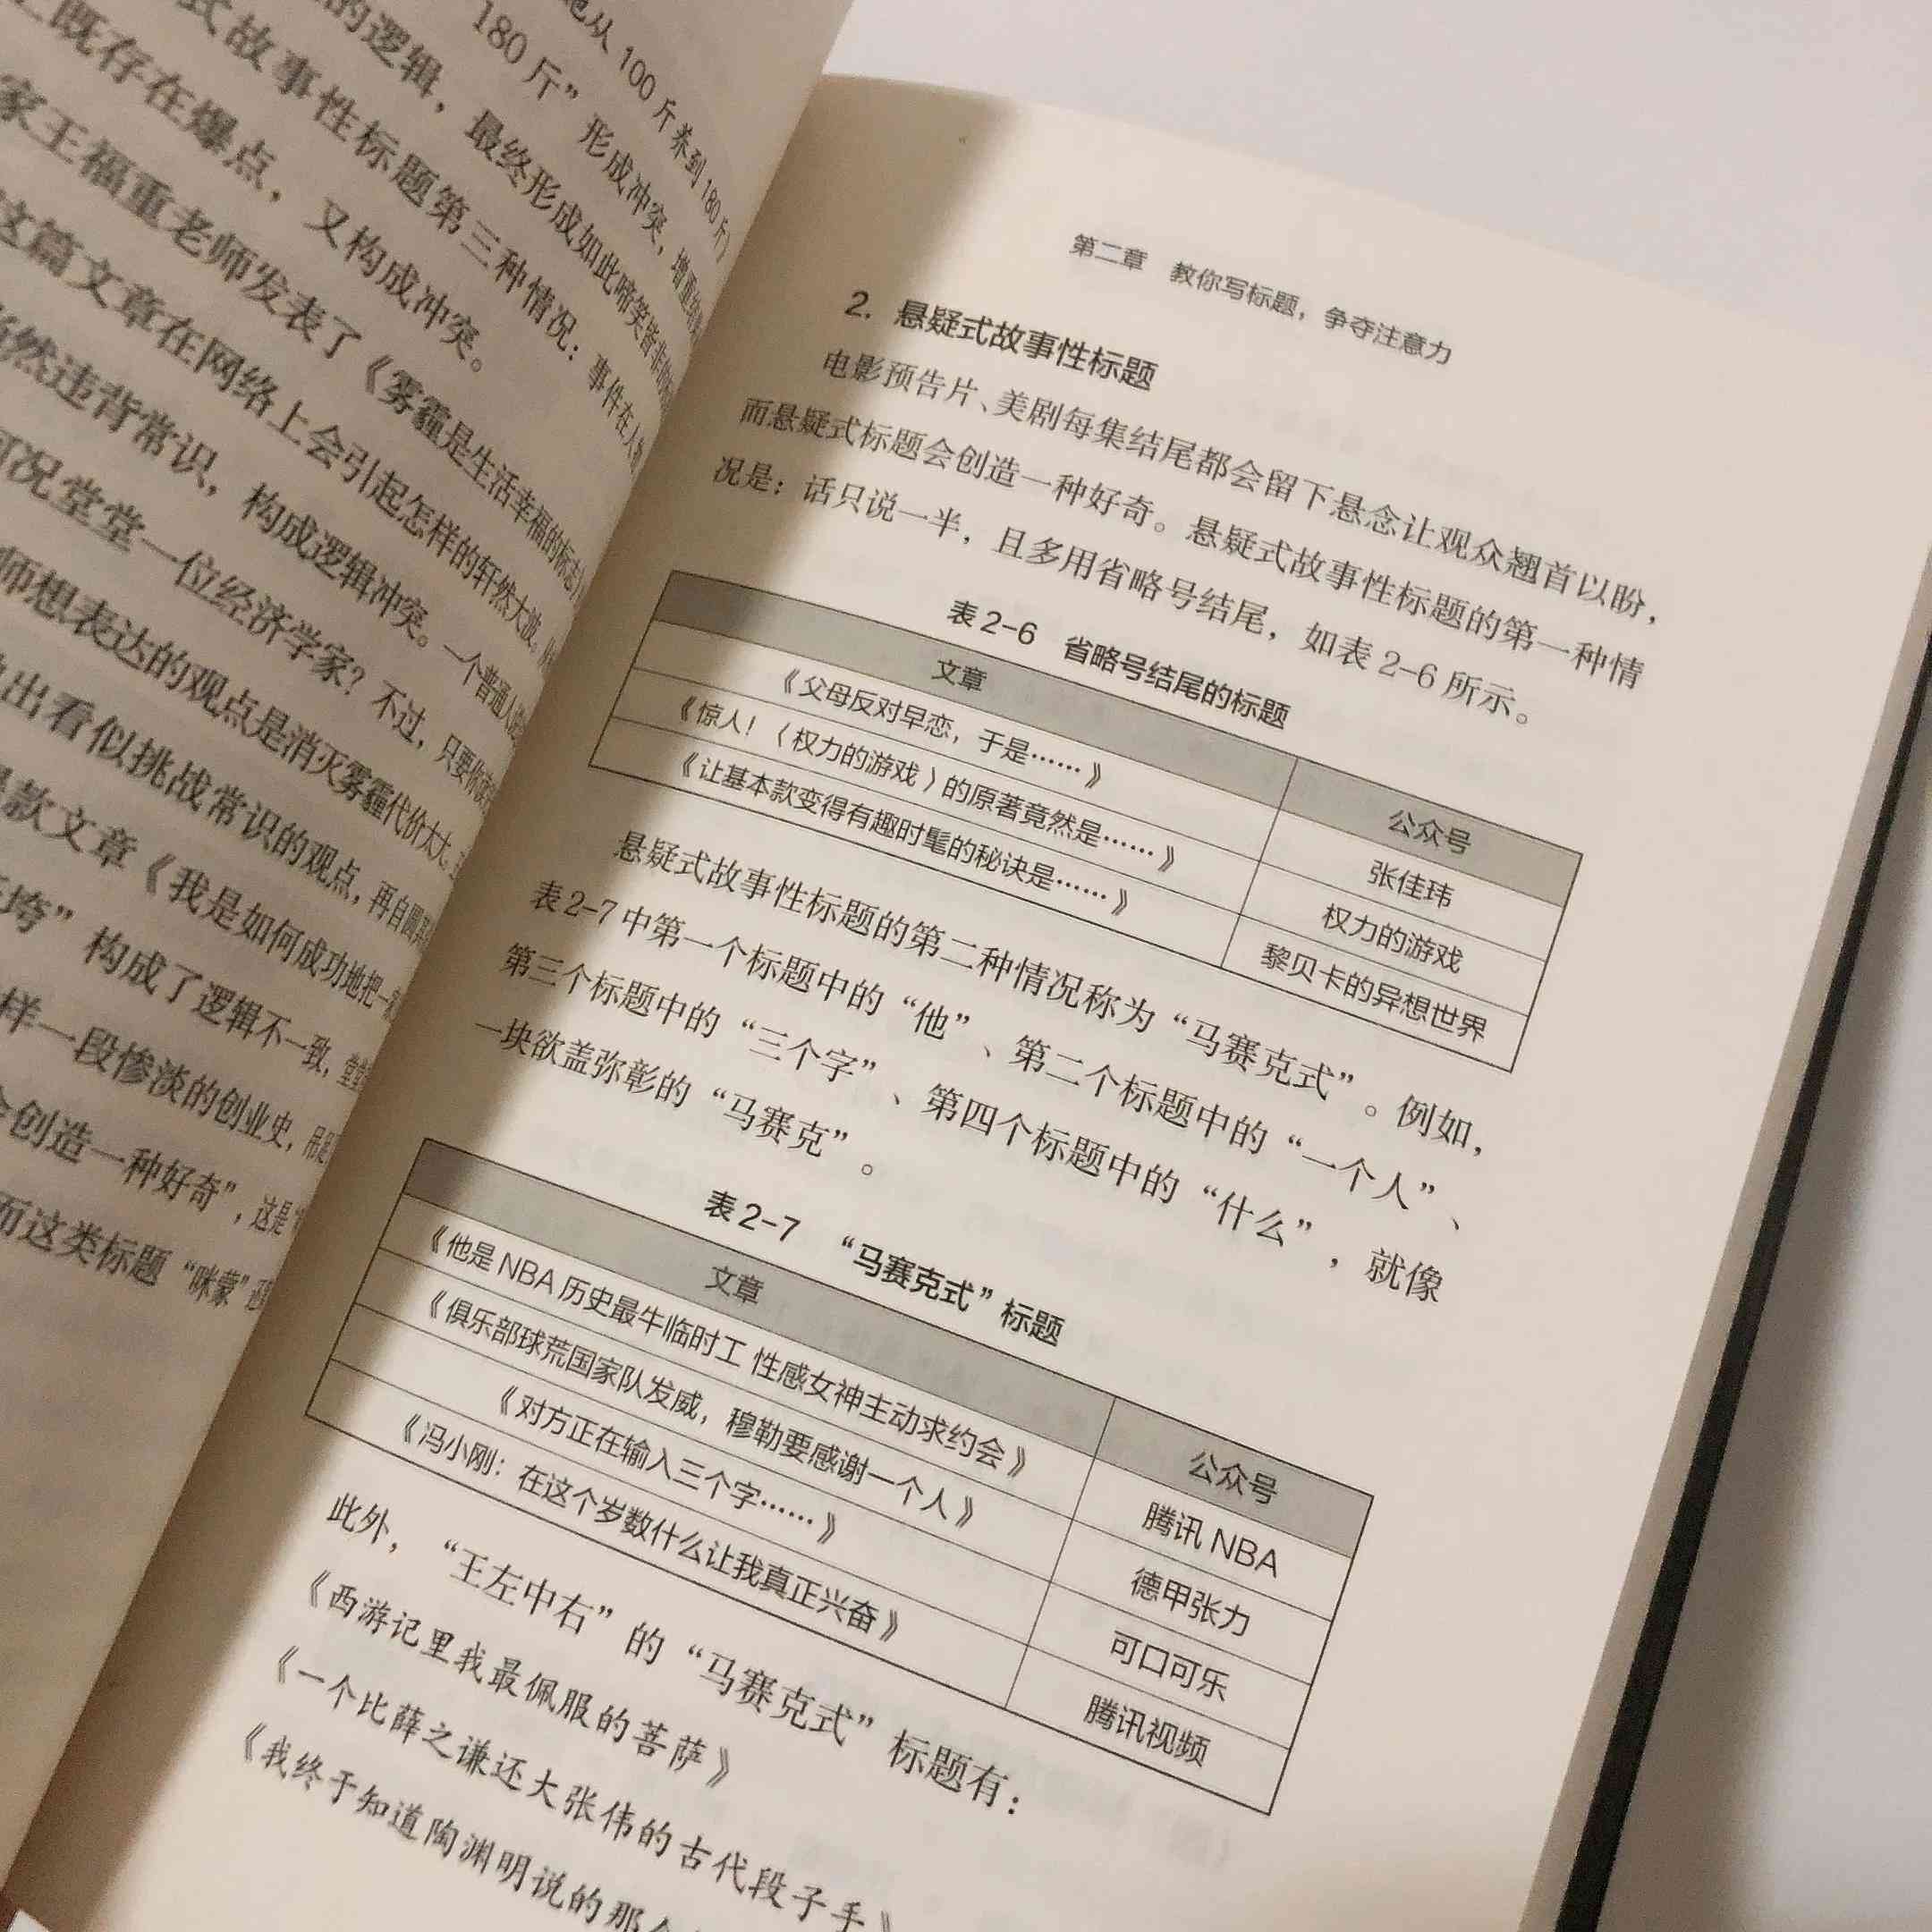 他从 100 斤养到 180 斤)
180 斤” 形成冲突，增重
的逻辑，最终形成如此啼笑皆非的
式故事性标题第三种情况：事件在人
上既存在爆点，又构成冲突。
家王福重老师发表了《雾霾是生活幸福的标志
这篇文章在网络上会引起怎样的轩然大波。
竟然违背常识，构成逻辑冲突。一个普通人
何况堂堂一位经济学家？不过，只要你
师想表达的观点是消灭雾霾代价太大，
出看似挑战常识的观点，再自圆其
款文章《我是如何成功地把一家
垮” 构成了逻辑不一致，堂堂
样一段惨淡的创业史，
创造一种好奇”，这是
而这类标题 “咪蒙”
第二章 教你写标题，争夺注意力
2. 悬疑式故事性标题
电影预告片、美剧每集结尾都会留下悬念让观众翘首以盼，
而悬疑式标题会创造一种好奇。悬疑式故事性标题的第一种情
况是：话只说一半，且多用省略号结尾，如表 2-6 所示。
表 2-6 省略号结尾的标题
文章 公众号
《父母反对早恋，于是……》 张佳玮
《惊人！〈权力的游戏〉的原著竟然是……》 权力的游戏
《让基本款变得有趣时髦的秘诀是……》 黎贝卡的异想世界
悬疑式故事性标题的第二种情况称为 “马赛克式”。例如，
表 2-7 中第一个标题中的 “他”、第二个标题中的 “一个人”、
第三个标题中的 “三个字”、第四个标题中的 “什么”，就像
一块欲盖弥彰的 “马赛克”。
表 2-7 “马赛克式” 标题
文章 公众号
《他是 NBA 历史最牛临时工 性感女神主动求约会》 腾讯 NBA
《俱乐部球荒国家队发威，穆勒要感谢一个人》 德甲张力
《对方正在输入三个字……》 可口可乐
《冯小刚：在这个岁数什么让我真正兴奋》 腾讯视频
此外，“王左中右” 的 “马赛克式” 标题有：
《西游记里我最佩服的菩萨》
《一个比薛之谦还大张伟的古代段子手》
《我终于知道陶渊明说的那